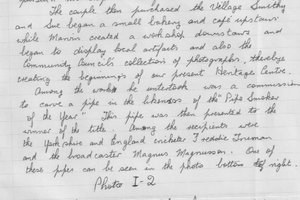 The couple then purchased the Village Smithy
and Sue began a small bakery and café upstairs
while Marvin created a workshop downstairs and
began to display local artifacts and also the
Community Council's collection of photographs, thereby
creating the beginnings of our present Heritage Centre.
Among the works he undertook was a commission
to carve a pipe in the likeness of the "Pipe Smoker
of the Year". This pipe was then presented to the
winner of the title. Among the recipients were
the Yorkshire and England cricketer Freddie Trueman
and the broadcaster Magnus Magnusson. One of
these pipes can be seen in the photo bottom right.
Photo I-2